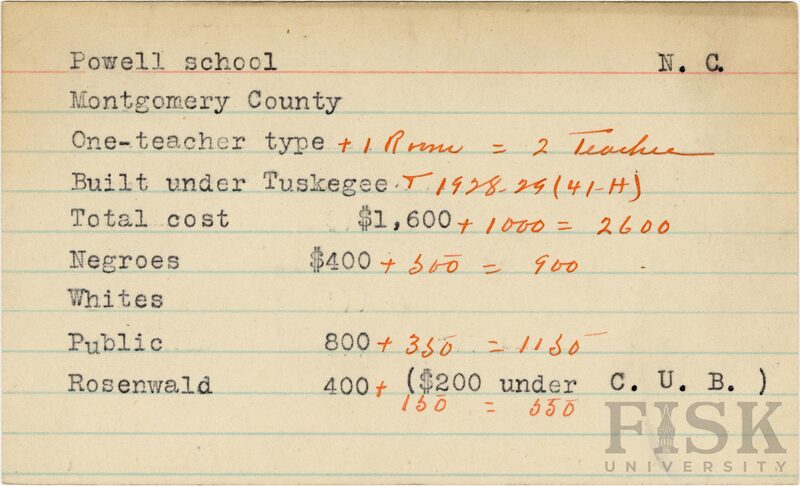 Powell school N. C.
Montgomery County
One-teacher type + 1 Room = 2 Teacher
Built under Tuskegee. + 1928-29 (41-H)
Total cost $1,600 + 1000 = 2600
Negroes $400 + 500 = 900
Whites
Public 800 + 350 = 1150
Rosenwald 400 + ($200 under C. U. B. )
150 = 550
FISK
UNIVERSITY